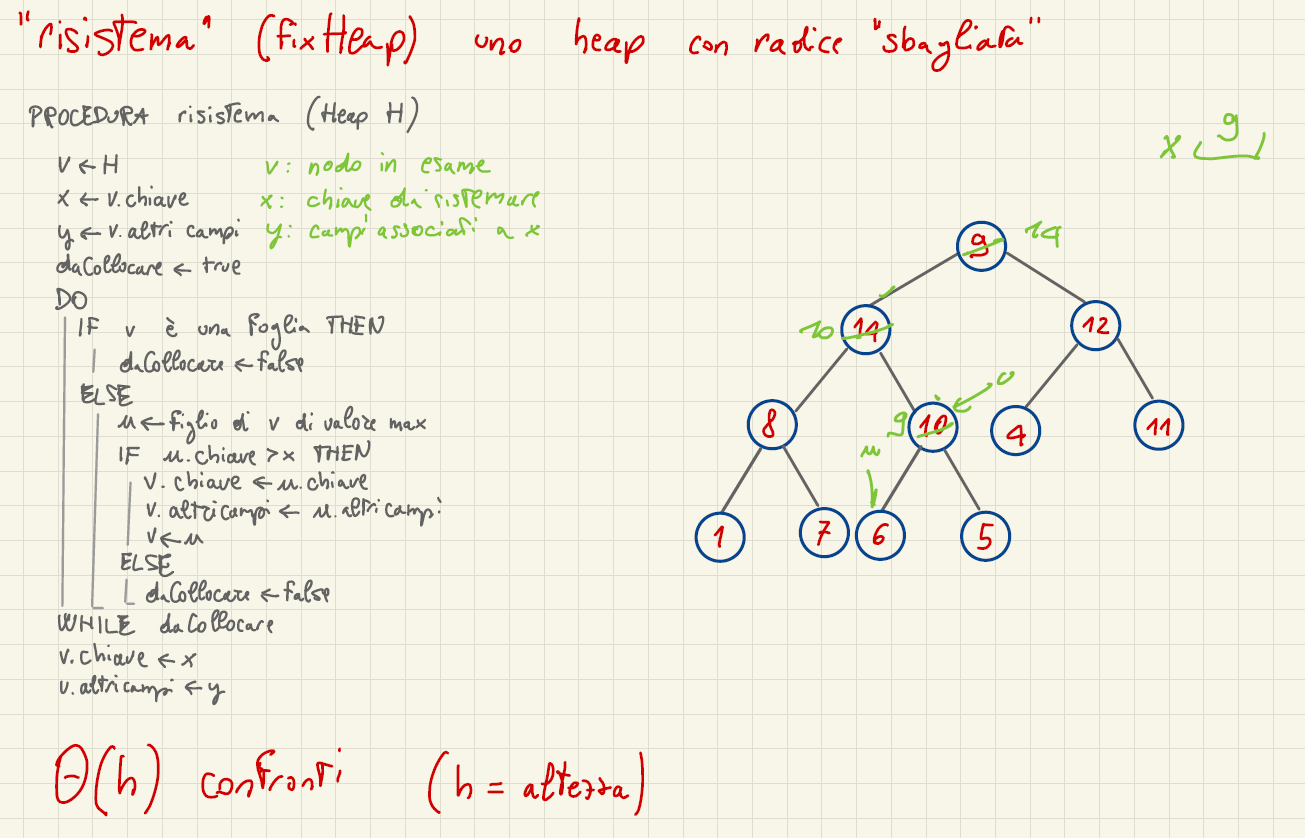 "risistema" (fixHeap) uno heap con radice "sbagliata"
PROCEDURA risistema (Heap H)
v ← H
v: nodo in esame
x ← v.chiave
x: chiave da sistemare
y ← v.altri campi
y: campi associati a x
daCollocare ← true
DO
IF v è una foglia THEN
daCollocare ← false
ELSE
u ← figlio di v di valore max
IF u.chiave > x THEN
v.chiave ← u.chiave
v.altricampi ← u.altricampi
v ← u
ELSE
daCollocare ← false
WHILE daCollocare
v.chiave ← x
v.altricampi ← y
Θ(h) confronti (h = altezza)
x 9
9 14
10 14 12
v
8 9 10 4 11
u
1 7 6 5